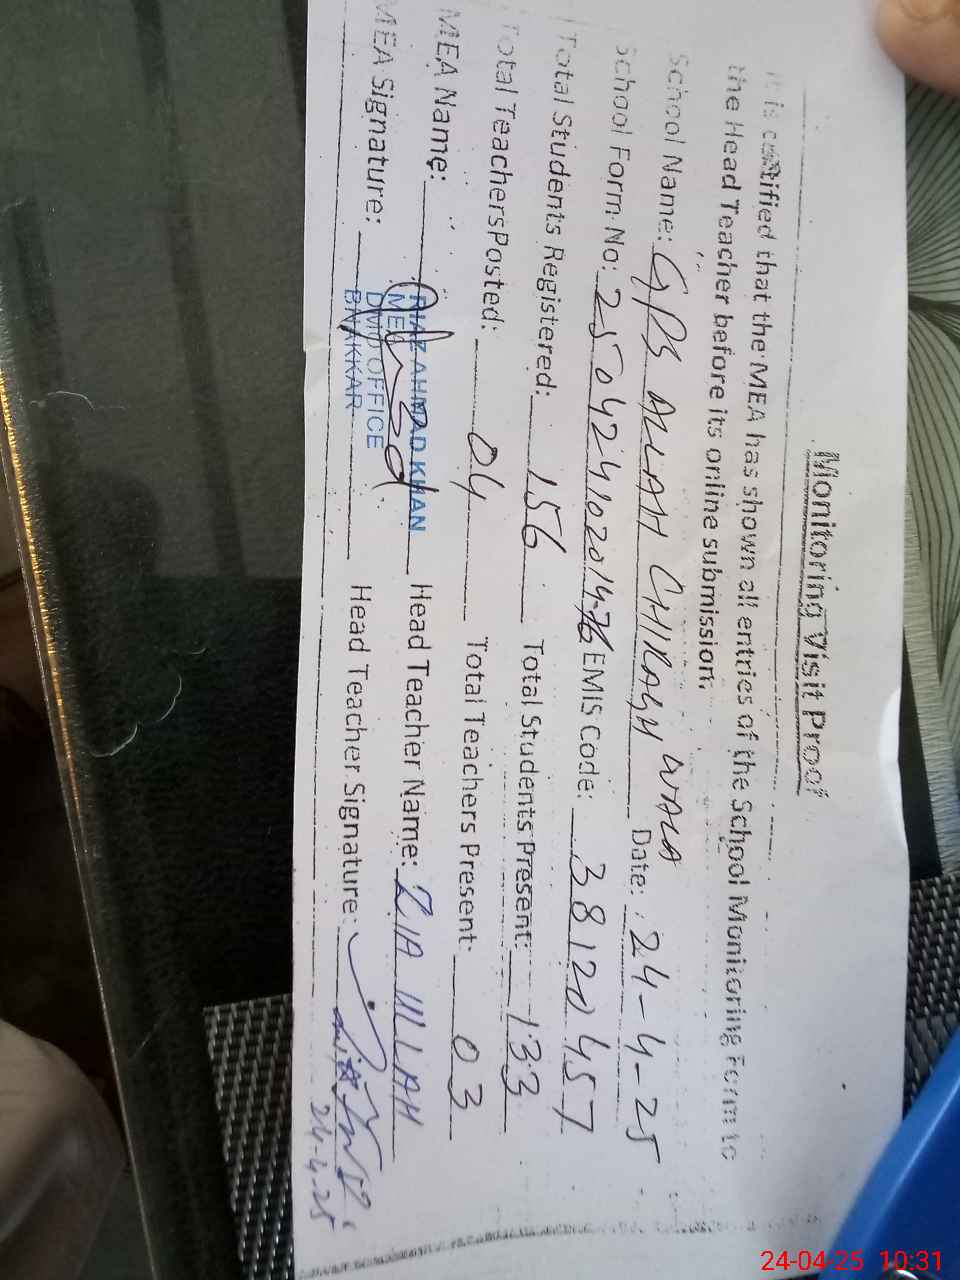 Monitoring Visit Proof
It is certified that the MEA has shown all entries of the School Monitoring Form to
the Head Teacher before its online submission.
School Name: GPS ALLAH CHIRAGH WALA Date: 24-4-25
School Form No: EMIS Code: 38120457
Total Students Registered: 156 Total Students Present: 133
Total Teachers Posted: 04 Total Teachers Present: 03
MEA Name: RIAZ AHMAD KHAN Head Teacher Name: ZIA ULLAH
MEA
DMO OFFICE
BHAKKAR
MEA Signature: Head Teacher Signature:
24-4-25
24-04-25 10:31